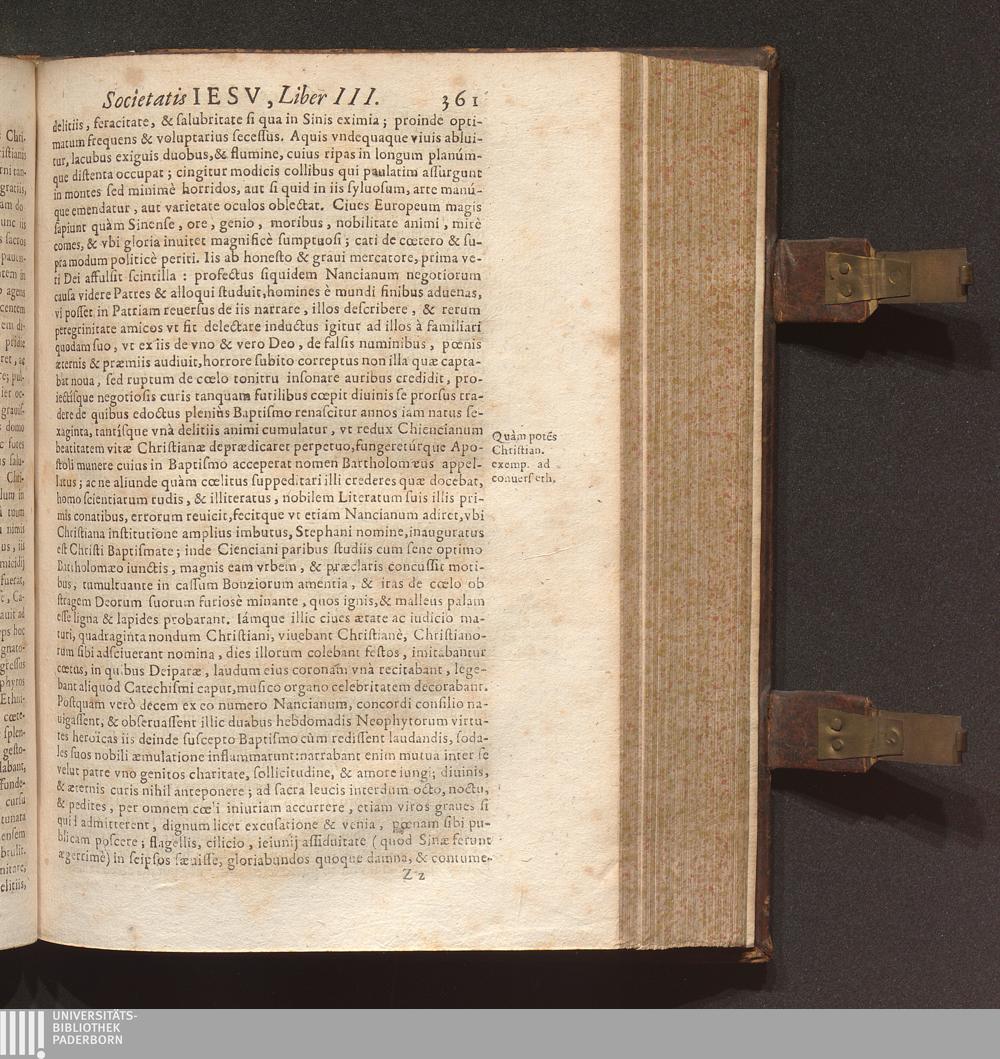 Societatis IESV, Liber III. 361
delitiis, feracitate, & salubritate si qua in Sinis eximia; proinde opti-
matum frequens & voluptarius secessus. Aquis vndequaque viuis ablui-
tur, lacubus exiguis duobus, & flumine, cuius ripas in longum planúm-
que distenta occupat; cingitur modicis collibus qui paulatim assurgunt
in montes sed minimè horridos, aut si quid in iis syluosum, arte manú-
que emendatur, aut varietate oculos oblectat. Ciues Europeum magis
sapiunt quàm Sinense, ore, genio, moribus, nobilitate animi, mirè
comes, & vbi gloria inuitet magnificè sumptuosi; cati de cœtero & su-
pra modum politicè periti. Iis ab honesto & graui mercatore, prima ve-
ri Dei affulsit scintilla: profectus siquidem Nancianum negotiorum
causa videre Patres & alloqui studuit, homines è mundi finibus aduenas,
vi posset in Patriam reuersus de iis narrare, illos describere, & rerum
peregrinitate amicos vt fit delectare inductus igitur ad illos à familiari
quodam suo, vt ex iis de vno & vero Deo, de falsis numinibus, pœnis
æternis & præmiis audiuit, horrore subito correptus non illa quæ capta-
bat noua, sed ruptum de cœlo tonitru insonare auribus credidit, pro-
iectisque negotiosis curis tanquam futilibus cœpit diuinis se prorsus tra-
dere de quibus edoctus pleniùs Baptismo renascitur annos iam natus se-
xaginta, tantisque vnà delitiis animi cumulatur, vt redux Chiencianum
beatitatem vitæ Christianæ deprædicaret perpetuo, fungeretúrque Apo-
stoli munere cuius in Baptismo acceperat nomen Bartholomæus appel-
latus; ac ne aliunde quàm cœlitus suppeditari illi crederes quæ docebat,
homo scientiarum rudis, & illiteratus, nobilem Literatum suis illis pri-
mis conatibus, errorum reuicit, fecitque vt etiam Nancianum adiret, vbi
Christiana institutione amplius imbutus, Stephani nomine, inauguratus
est Christi Baptismate; inde Cienciani paribus studiis cum sene optimo
Bartholomæo iunctis, magnis eam vrbem, & præclaris concussit moti-
bus, tumultuante in cassum Bonziorum amentia, & iras de cœlo ob
stragem Deorum suorum furiosè minante, quos ignis, & malleus palam
esse ligna & lapides probarant. Iámque illic ciues ætate ac iudicio ma-
turi, quadraginta nondum Christiani, viuebant Christianè, Christiano-
rum sibi adsciuerant nomina, dies illorum colebant festos, imitabantur
cœtus, in quibus Deiparæ, laudum eius coronam vnà recitabant, lege-
bant aliquod Catechismi caput, musico organo celebritatem decorabant.
Postquam verò decem ex eo numero Nancianum, concordi consilio na-
uigassent, & obseruassent illic duabus hebdomadis Neophytorum virtu-
tes heroïcas iis deinde suscepto Baptismo cùm redissent laudandis, soda-
les suos nobili æmulatione inflammarunt: narrabant enim mutua inter se
velut patre vno genitos charitate, sollicitudine, & amore iungi; diuinis,
& æternis curis nihil anteponere; ad sacra leucis interdum octo, noctu,
& pedites, per omnem cœli iniuriam accurrere, etiam viros graues si
quid admitterent, dignum licet excusatione & venia, pœnam sibi pu-
blicam poscere; flagellis, cilicio, ieiunij assiduitate (quod Sinæ ferunt
ægerrimè) in seipsos sæuisse, gloriabundos quoque damna, & contume-
Z 2
Quàm potēs
Christian.
exemp. ad
conuers eth.
UNIVERSITÄTS-
BIBLIOTHEK
PADERBORN